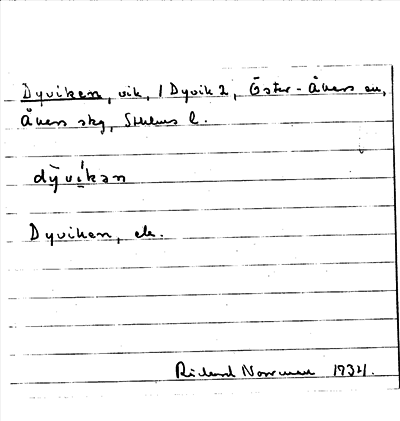 Dyviken, vik, 1 Dyvik 2, Öster-Åkers sn,
Åkers skg, Sthlms l.
dy̆víkən
Dyviken, ek.
Richard Norrman 1934.